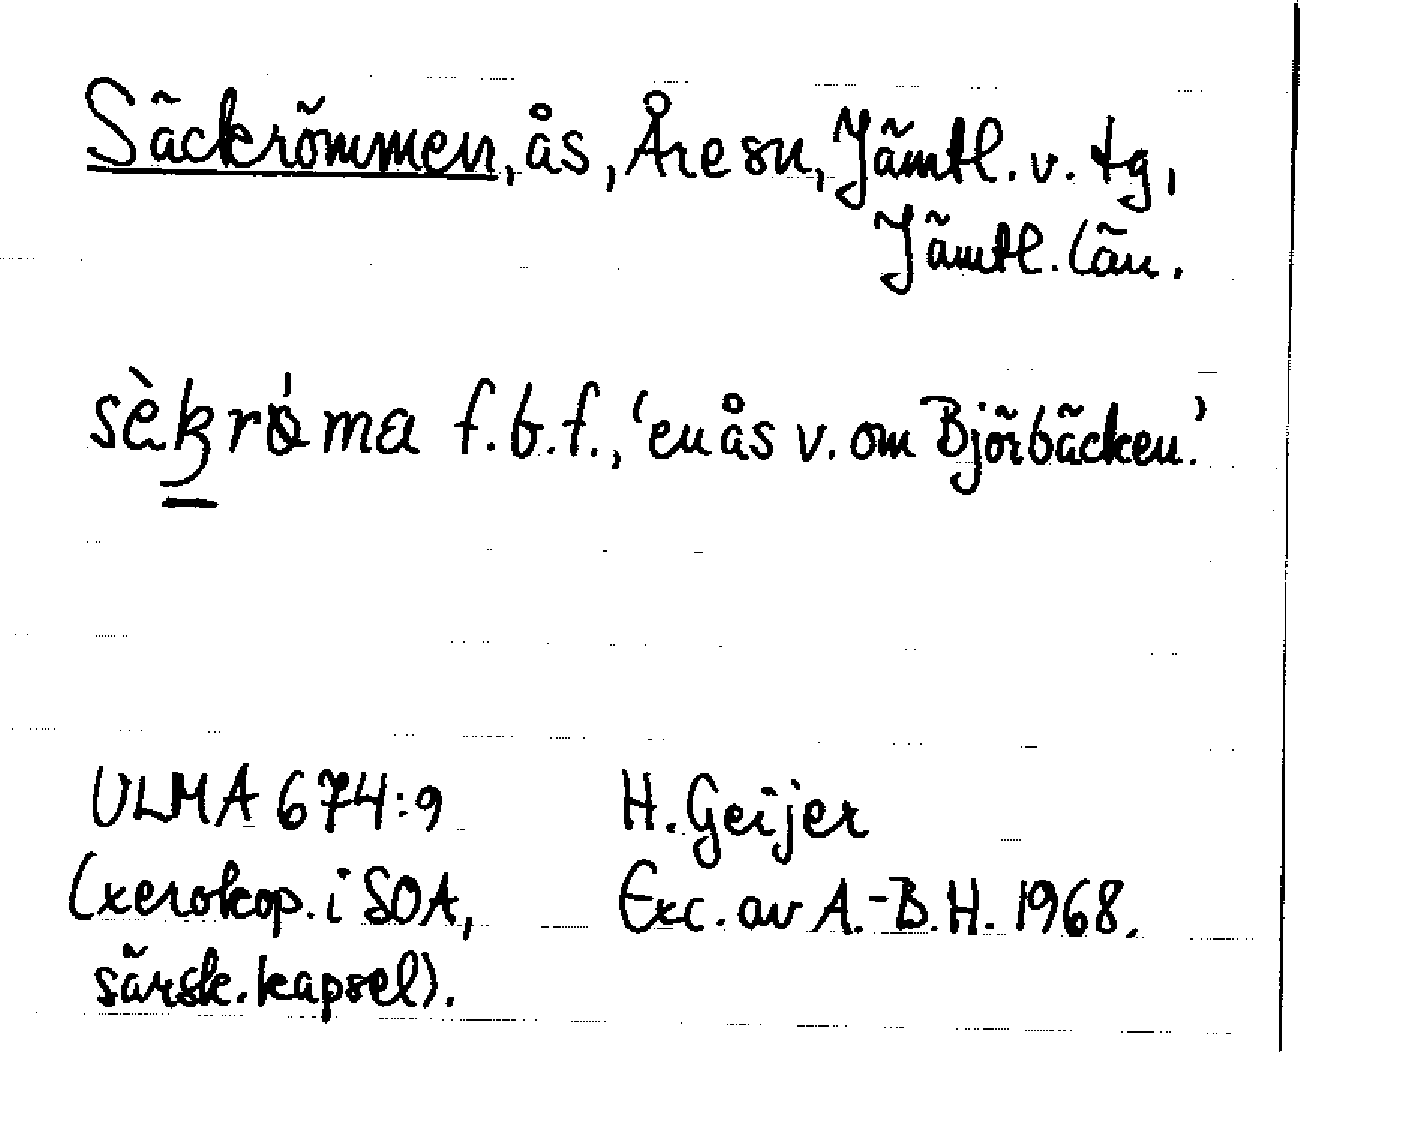 Säckrömmen, ås, Åre sn, Jämtl. v. tg,
Jämtl. län.
sè̱kröma f.b.f., 'en ås v. om Björbäcken.'
ULMA 674:9 H. Geijer
(xerokop. i SOA, Exc. av A.-B.H. 1968.
särsk. kapsel).